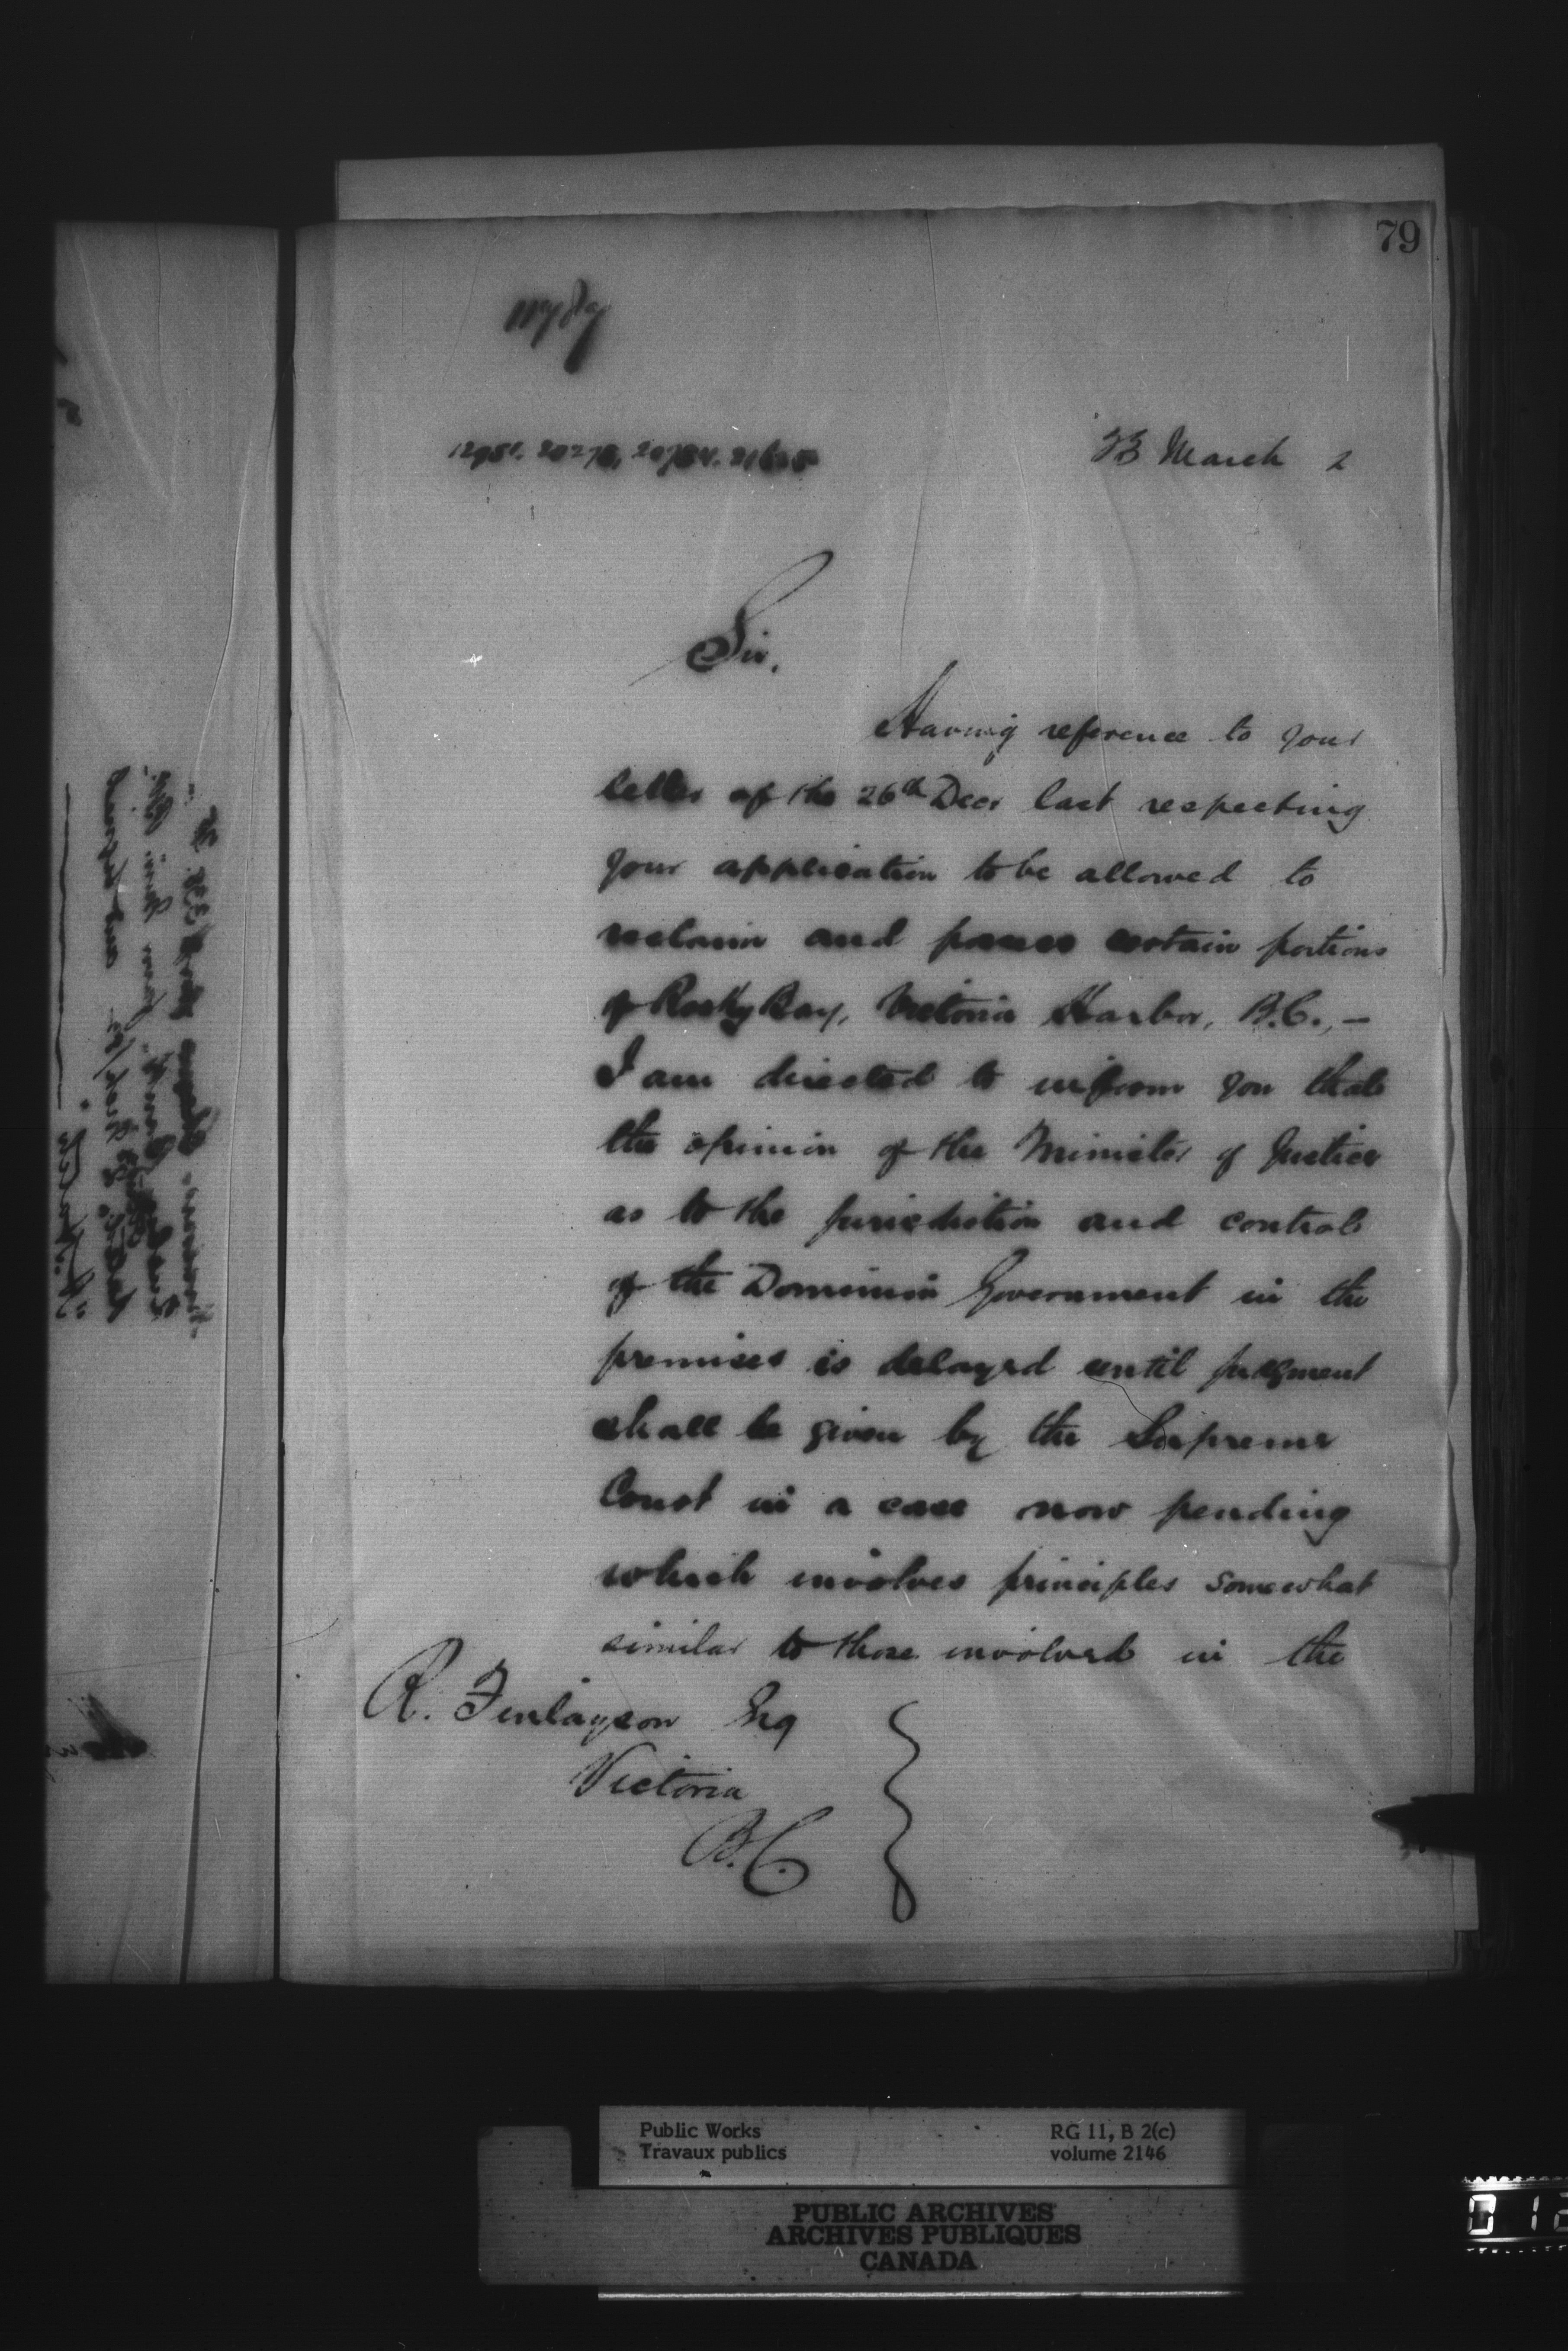 79
12951. 20278, 20784. 21605
23 March 2
Sir,
Having reference to your
letter of the 26th Decr last respecting
your application to be allowed to
reclaim and possess certain portions
of Rocky Bay, Victoria Harbor, B.C., —
I am directed to inform you that
the opinion of the Minister of Justice
as to the jurisdiction and control
of the Dominion Government in the
premises is delayed until judgment
shall be given by the Supreme
Court in a case now pending
which involves principles somewhat
similar to those involved in the
R. Finlayson Esq
Victoria
B.C.
Public Works
Travaux publics
RG 11, B 2(c)
volume 2146
PUBLIC ARCHIVES
ARCHIVES PUBLIQUES
CANADA